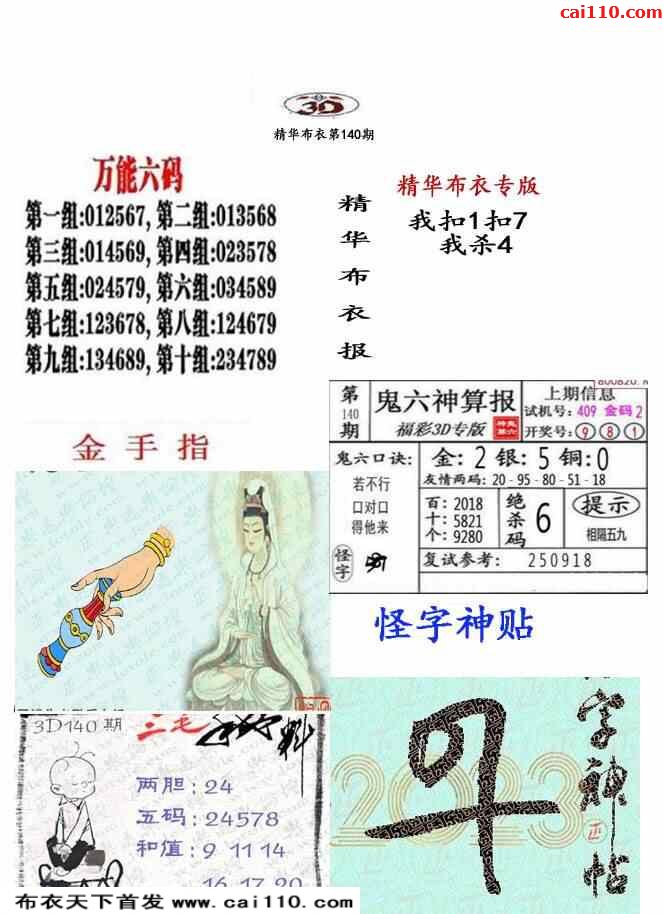 cai110.com
3D
精华布衣第140期
万能六码
第一组:012567,第二组:013568
第三组:014569,第四组:023578
第五组:024579,第六组:034589
第七组:123678,第八组:124679
第九组:134689,第十组:234789
精华布衣报
精华布衣专版
我扣1扣7
我杀4
金手指
第140期
鬼六神算报
福彩3D专版
上期信息
试机号: 409 金码2
开奖号: 9 8 1
鬼六口诀:
若不行
口对口
得他来
怪字
金: 2 银: 5 铜: 0
友情两码: 20-95-80-51-18
百: 2018
十: 5821
个: 9280
绝杀码
6
提示
相隔五九
复试参考: 250918
怪字神贴
3D140期
三毛
两胆: 24
五码: 24578
和值: 9 11 14
16 17 20
2023
字神帖
布衣天下首发 www.cai110.com